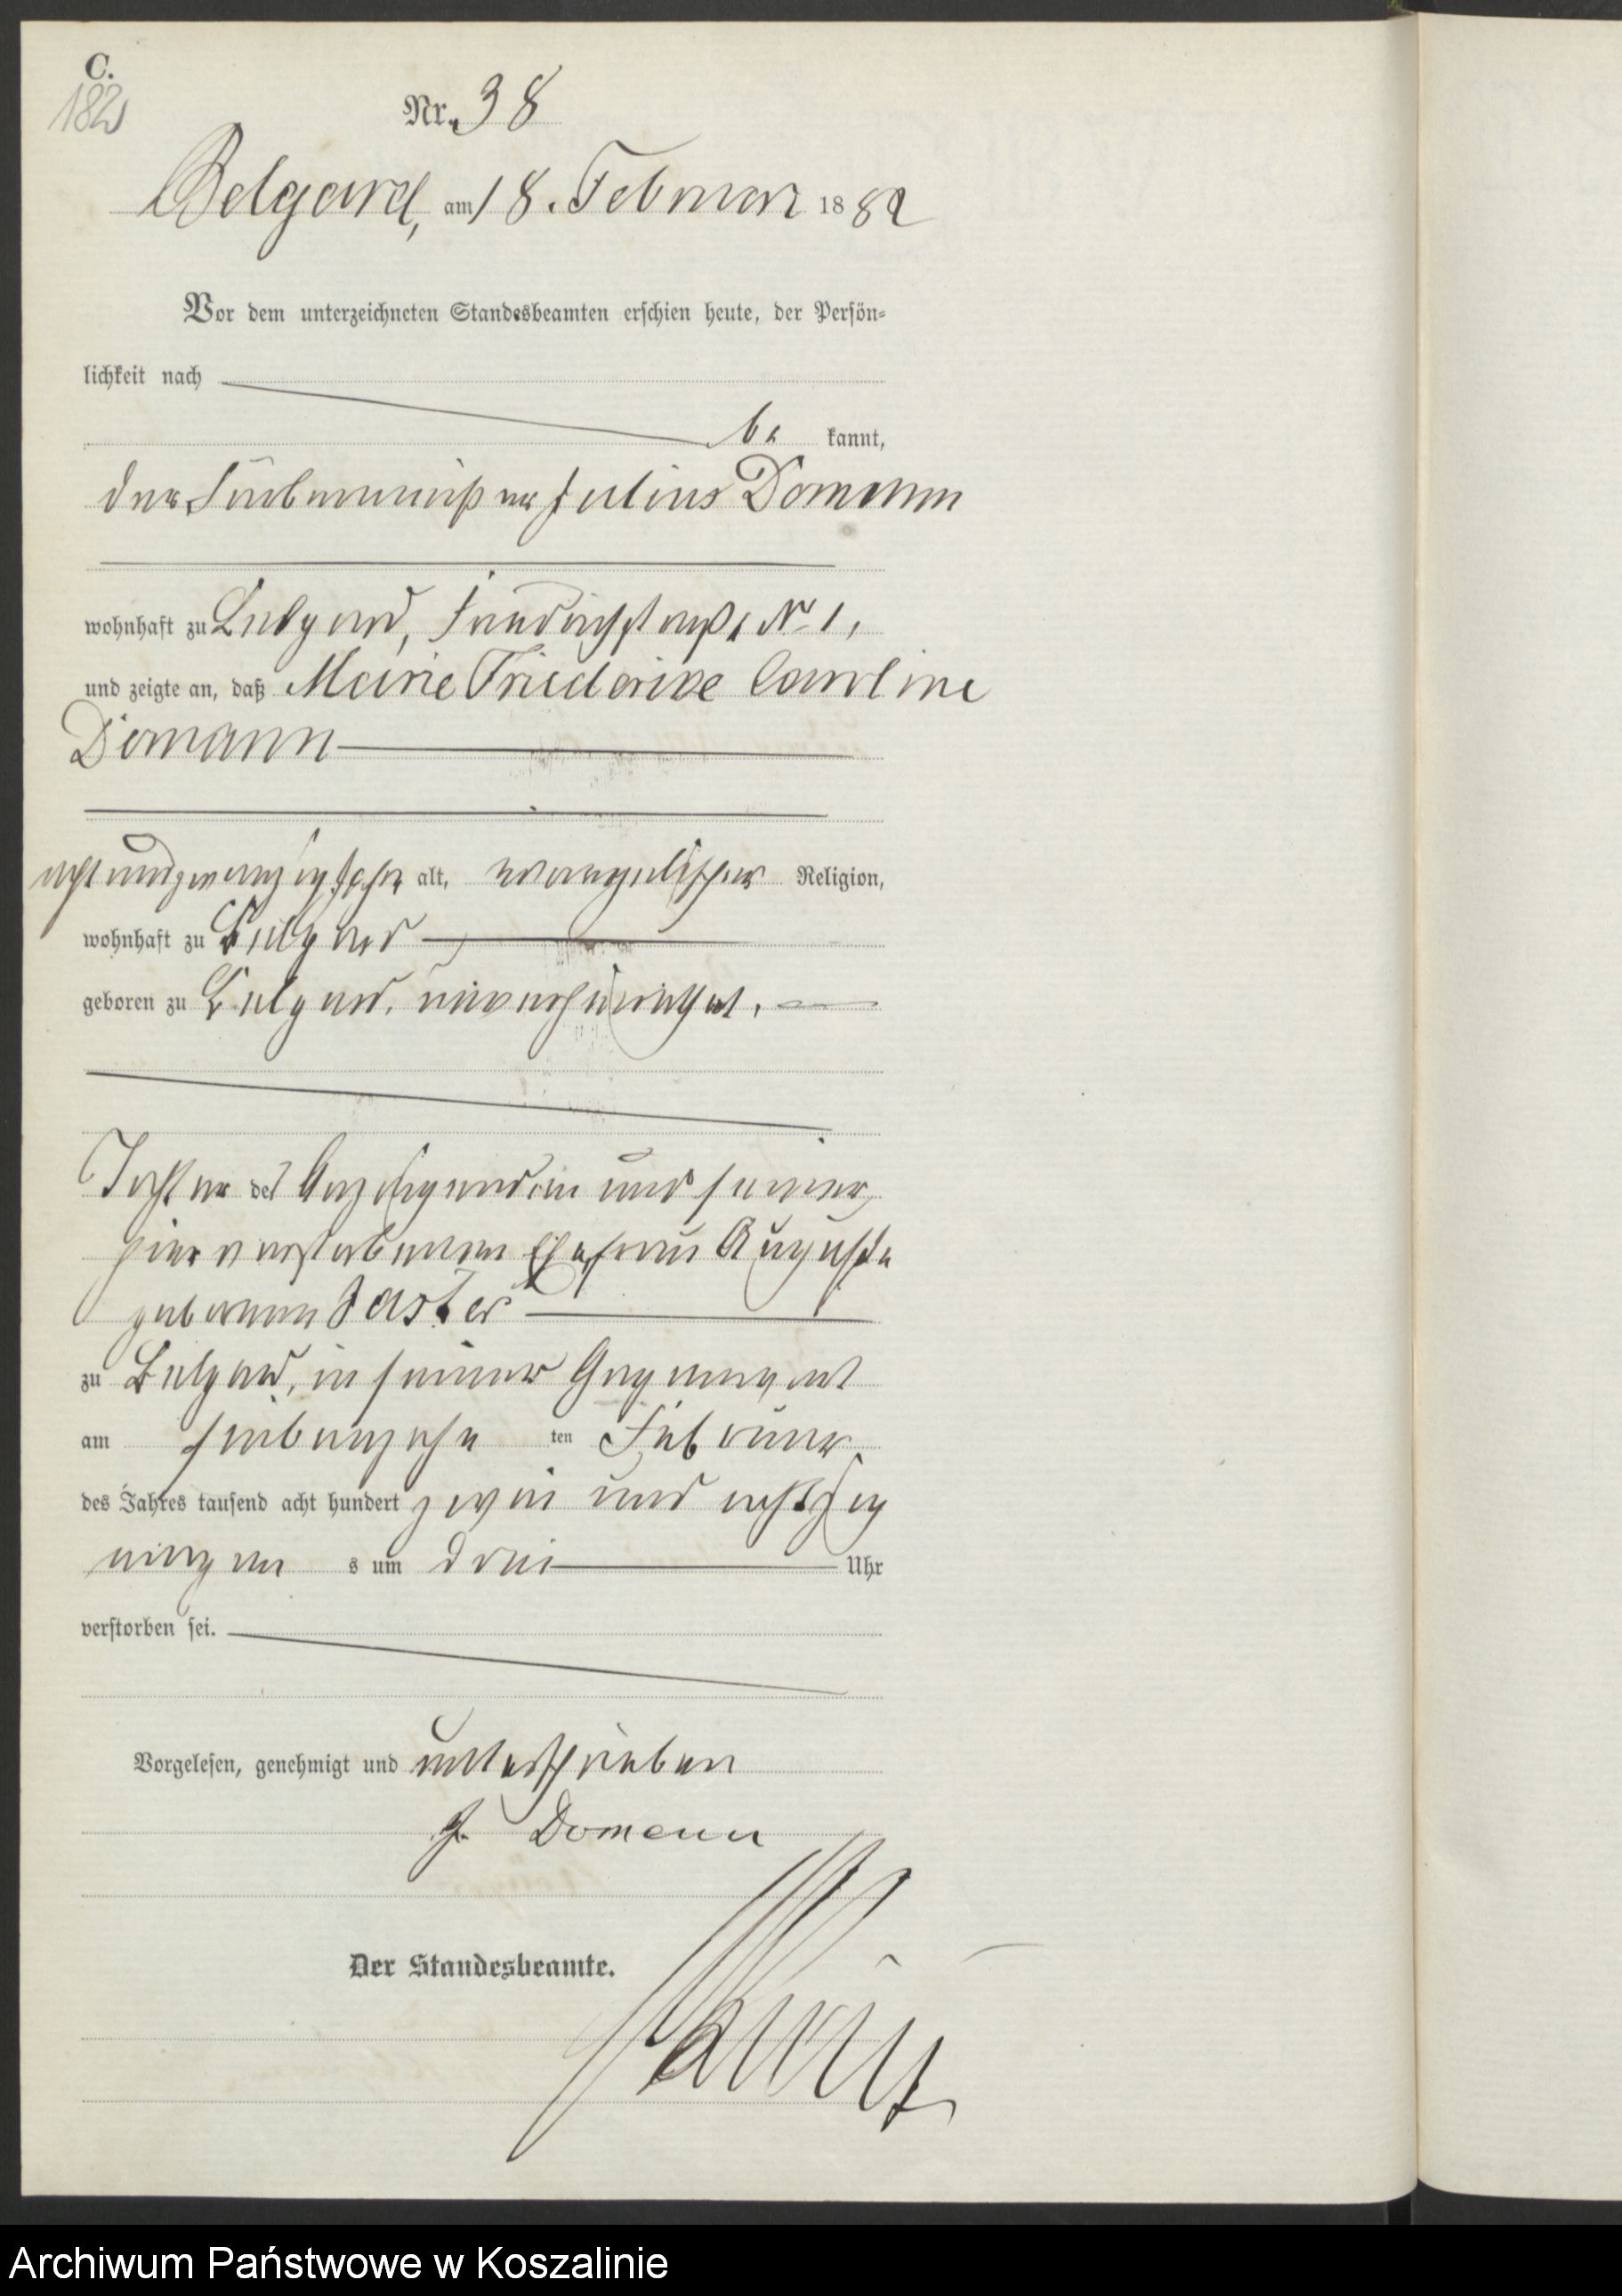 C.
182
Nr. 38
Belgard, am 18. Februar 1882
Vor dem unterzeichneten Standesbeamten erschien heute, der Persön-
lichkeit nach
be kannt,
der Färbermeister Julius Domann
wohnhaft zu Belgard, Friedrichstraße No 1,
und zeigte an, daß Marie Friederike Caroline
Domann
achtundzwanzig Jahr alt, evangelischer Religion,
wohnhaft zu Belgard
geboren zu Belgard, unverheirathet.
Tochter des Anzeigenden und seiner
hier verstorbenen Ehefrau Auguste
geborenen Saster
zu Belgard, in seiner Gegenwart
am siebenzehn ten Februar
des Jahres tausend acht hundert zwei und achtzig
morgen s um drei Uhr
verstorben sei.
Vorgelesen, genehmigt und unterschrieben
J. Domann
Der Standesbeamte.
Archiwum Państwowe w Koszalinie